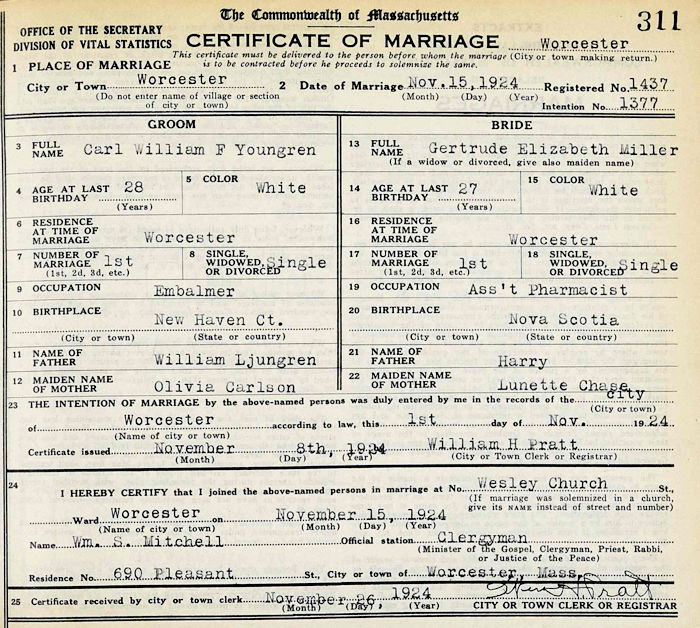 The Commonwealth of Massachusetts
311
OFFICE OF THE SECRETARY
DIVISION OF VITAL STATISTICS
CERTIFICATE OF MARRIAGE
Worcester
(City or town making return.)
This certificate must be delivered to the person before whom the marriage
is to be contracted before he proceeds to solemnize the same.
1 PLACE OF MARRIAGE
City or Town Worcester
(Do not enter name of village or section
of city or town)
2 Date of Marriage Nov. 15, 1924
(Month) (Day) (Year)
Registered No. 1437
Intention No. 1377
GROOM
3 FULL NAME Carl William F Youngren
4 AGE AT LAST BIRTHDAY 28
(Years)
5 COLOR White
6 RESIDENCE AT TIME OF MARRIAGE Worcester
7 NUMBER OF MARRIAGE 1st
(1st, 2d, 3d, etc.)
8 SINGLE, WIDOWED, OR DIVORCED Single
9 OCCUPATION Embalmer
10 BIRTHPLACE New Haven Ct.
(City or town) (State or country)
11 NAME OF FATHER William Ljungren
12 MAIDEN NAME OF MOTHER Olivia Carlson
BRIDE
13 FULL NAME Gertrude Elizabeth Miller
(If a widow or divorced, give also maiden name)
14 AGE AT LAST BIRTHDAY 27
(Years)
15 COLOR White
16 RESIDENCE AT TIME OF MARRIAGE Worcester
17 NUMBER OF MARRIAGE 1st
(1st, 2d, 3d, etc.)
18 SINGLE, WIDOWED, OR DIVORCED Single
19 OCCUPATION Ass't Pharmacist
20 BIRTHPLACE Nova Scotia
(City or town) (State or country)
21 NAME OF FATHER Harry
22 MAIDEN NAME OF MOTHER Lunette Chase
23 THE INTENTION OF MARRIAGE by the above-named persons was duly entered by me in the records of the city
(City or town)
of Worcester according to law, this 1st day of Nov. 1924
(Name of city or town)
Certificate issued November 8th, 1924 William H Pratt
(Month) (Day) (Year) (City or Town Clerk or Registrar)
24 I HEREBY CERTIFY that I joined the above-named persons in marriage at No. Wesley Church St.,
(If marriage was solemnized in a church,
give its NAME instead of street and number)
Ward Worcester on November 15, 1924
(Name of city or town) (Month) (Day) (Year)
Name Wm. S. Mitchell Official station Clergyman
(Minister of the Gospel, Clergyman, Priest, Rabbi,
or Justice of the Peace)
Residence No. 690 Pleasant St., City or town of Worcester, Mass.
25 Certificate received by city or town clerk November 26, 1924
(Month) (Day) (Year)
Pratt
CITY OR TOWN CLERK OR REGISTRAR